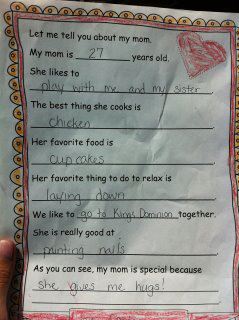 Let me tell you about my mom.
My mom is 27 years old.
She likes to
play with me and my sister.
The best thing she cooks is
chicken.
Her favorite food is
cupcakes.
Her favorite thing to do to relax is
laying down.
We like to go to Kings Dominion together.
She is really good at
painting nails.
As you can see, my mom is special because
she gives me hugs!